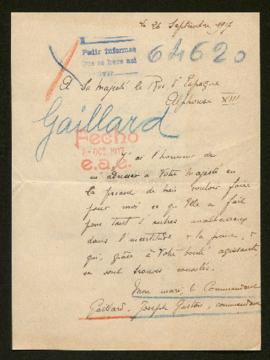 le 26 Septembre 1917
Pedir informes
64620
A Sa Majesté le Roi d'Espagne
Alphonse XIII
Gaillard
Fecho
OCT. 1917
e.a.c.
J'ai l'honneur de
m'adresser à Votre Majesté en
la priant de bien vouloir faire
pour moi ce qu'Elle a fait
pour tant d'autres malheureux
dans l'incertitude et la peine, &
qui, grâce à Votre bonté agissante
se sont trouvés consolés.
Mon mari, le Commandant
Gaillard, Joseph Gaston, commandant